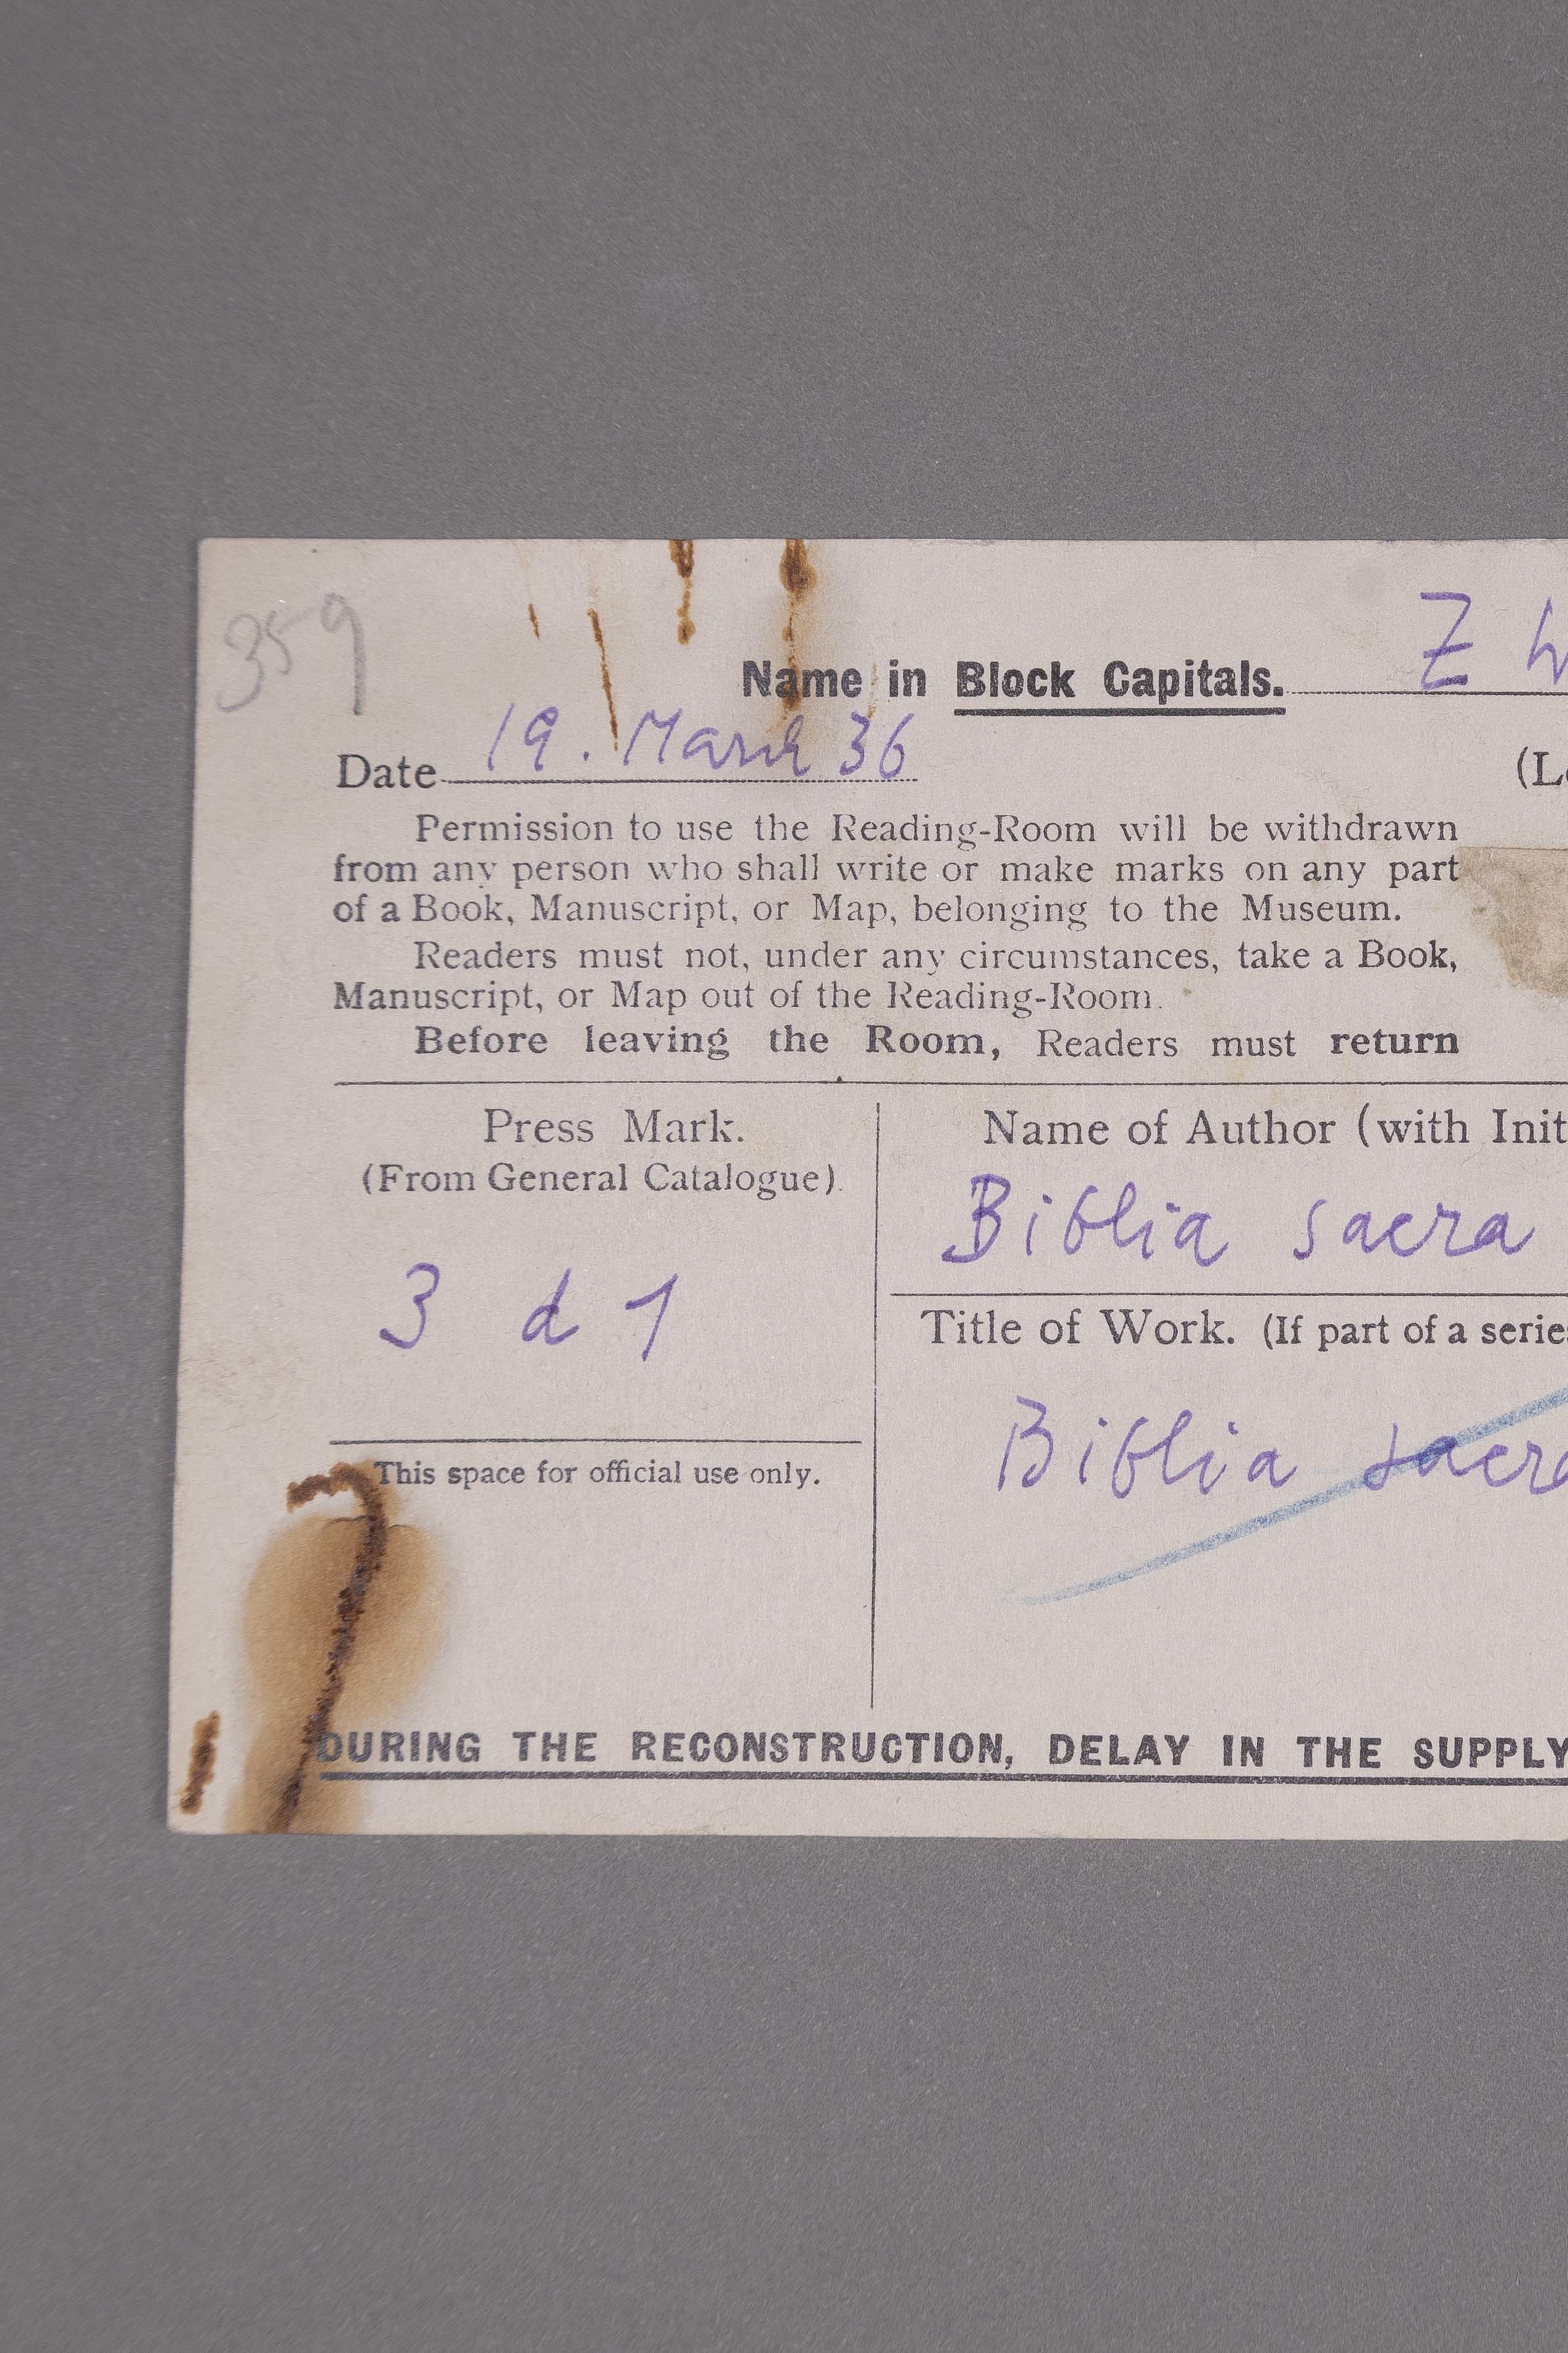 359
Name in Block Capitals. Z
Date 19. March 36
(L
Permission to use the Reading-Room will be withdrawn
from any person who shall write or make marks on any part
of a Book, Manuscript, or Map, belonging to the Museum.
Readers must not, under any circumstances, take a Book,
Manuscript, or Map out of the Reading-Room.
Before leaving the Room, Readers must return
Press Mark.
(From General Catalogue).
3 d 1
This space for official use only.
Name of Author (with Init
Biblia sacra
Title of Work. (If part of a serie
Biblia sacra
DURING THE RECONSTRUCTION, DELAY IN THE SUPPLY